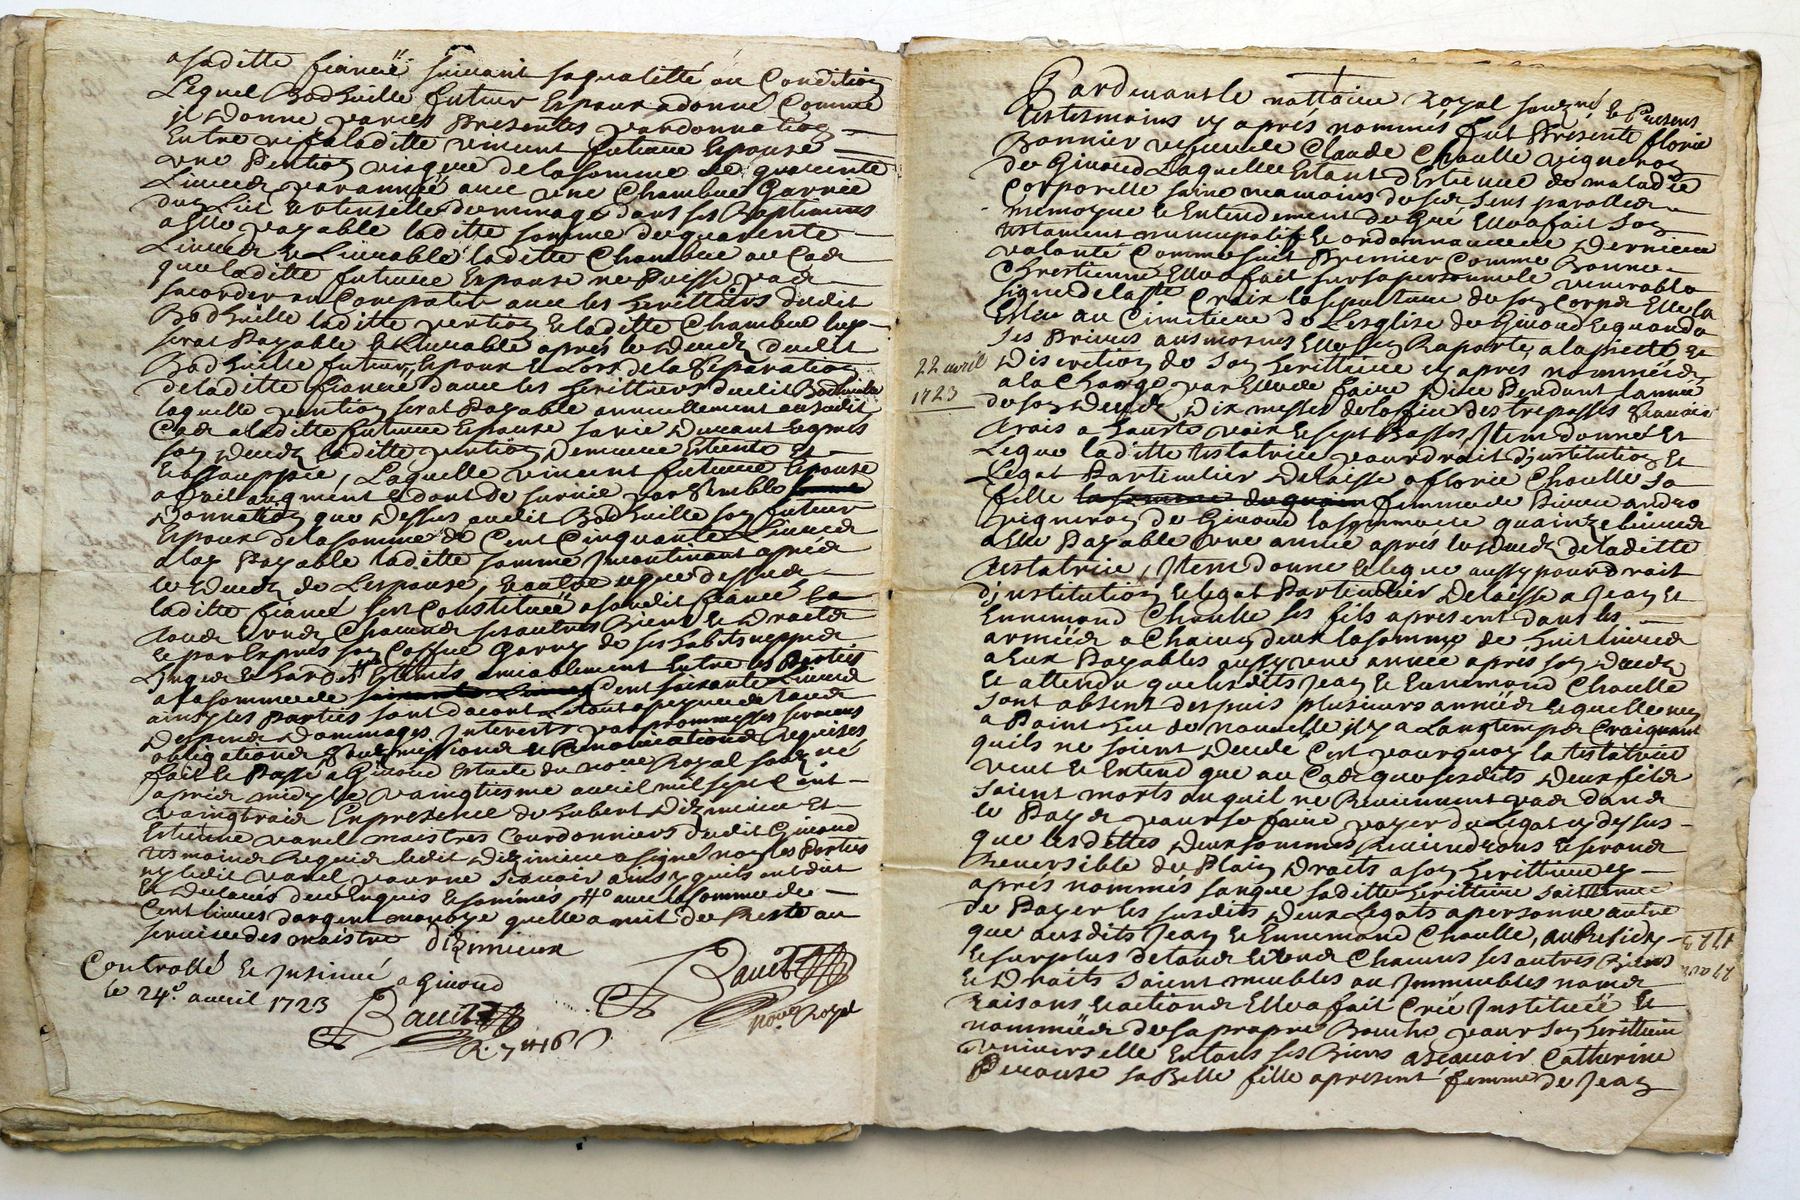 asaditte fiancéé suivant saqualitté ou Condition
Lequel Bodhuille futeur Espoux adonné Comme
il Donne par ces Presentes par donnation
Entre vifs a laditte vincent future Espouse
une Pention viagere de la somme de quarente
Livres par année avec une Chambre Garnie
a Elle payable laditte somme de quarente
Livres & Livrable laditte Chambre au Cas
que laditte future Espouse ne Puisse pas
sacorder ou Compatir avec les heritiers dudit
Bodhuille laditte pention & laditte Chambre luy
serat Payable & Livrable aprés le Decés dudit
Bodhuille futeur Espoux & Lors de la Separation
de laditte fiancée davec les heritiers dudit Bodhuille
laquelle pention serat Payable annuellement audit
Cas a laditte future Espouse sa vie Durant & aprés
son Decés laditte pention Demeure Esteinte et
Laquelle vincent future Espouse
a fait augment & dont de survie par semblable
Donnation que Dessus audit Bodhuille son futeur
Espoux de la somme de Cent Cinquante Livres
a luy Payable laditte somme Incontinant aprés
le Decés de Lespouse, & outre ce que dessus
laditte fiancé sest Constituéé a sondit fiancé
tous & uns Chacuns ses autres Biens & Droits
& par Exprés son Coffre Garny de ses habits nippes
Linges & hardes Estimés amiablement Entre les Parties
a la somme de Cent soixante Livres
ainsy les Parties sont dacort & tout a peyne de tous
Despens Dommages Interests par prommesses sermens
obligations soubmissions & Renonciations Requises
fait & Passé a Givord Estude du no.re Royal soubz.né
aprés midy le vaingtieme avril mil sept Cent
vaingtrois En presence de hubert Dizimieux Et
Estienne varel maistres Courdonniers dudit Givord
tesmoins Requis ledit Dizimieux a signé non les Parties
ny ledit varel pour ne scavoir ainsy quils ont dit
avec la somme de
Cent livres dargent monoye quelle a mit de Reste au
service des maistre Dizimieux
Controllé & Insinué a Givord
le 24.e avril 1723
not.re Royal
Pardevant le nottaire Royal soubz.né & Presens
les tesmoins cy aprés nommés fut Presente florie
Bonnier vefve de Claude Choulle vigneron
de Givord Laquelle Estant Destenue de maladie
Corporelle saine neamoins de ses sens parolle
memoyre & Entendement de Gré Elle a fait son
testament nuncupatif & ordonnance de Derniere
volonté Comme suit Premier Comme Bonne
Chrestienne Elle a fait sur sa personne le venerable
signe de la s.te Croix la sepulture de son Corps Elle la
Esleu au Cimitiere de Lesglise de Givord & quand a
ses Prieres aumosnes Elle sen Raporte a la pieté &
22 avril
1723
Discretion de son heritiere cy aprés nommée
a la Charge par Elle de faire Dire Pendant lannée
de son Decés Dix messes de loffice des trepassés scavoir
trois a hautte voix & sept Basses, Item donne Et
Legue laditte testatrice pour droit dinstitution Et
Legat Particulier Delaissé a florie Choulle sa
fille femme de Pierre andro
vigneron de Givord la somme de quainze livres
a Elle Payable une année aprés le Decés de laditte
testatrice, Item donne & legue aussy pour droit
dinstitution & legat Particulier Delaissé a Jean Et
Ennemond Choulle ses fils a present dans les
arméés a Chacun deux la somme de huit livres
a Eux Payables aussy une année aprés son Decés
& attendu que lesdits Jean & Ennemond Choulle
sont absent despuis plusieurs annéés & quelle nen
a Point heu de nouvelle il y a Longtemps Craignant
quils ne soient Decedé Cest pourquoy la testatrice
veut & Entend que au Cas que sesdits Deux fils
soient morts ou quil ne Reviennent pas dans
le Pays pour se faire payer du Legat cy dessus
que lesdittes Deux sommes Reviendrons & seront
Reversible de Plain Droits a son heritiere cy
aprés nommés sans que saditte heritiere soit tenue
de Payer les susdits Deux Legats a personne autre
que ausdits Jean & Ennemond Choulle, au Residu
& surplus de tous & uns Chacuns ses autres Biens
& Droits soient meubles ou Immeubles noms
Raisons & actions Elle a fait Créé Instituéé Et
nomméé de sa propre Bouche pour son heritiere
universelle En tous ses Biens ascavoir Catherine
Perouse sa Belle fille a present femme de Jean